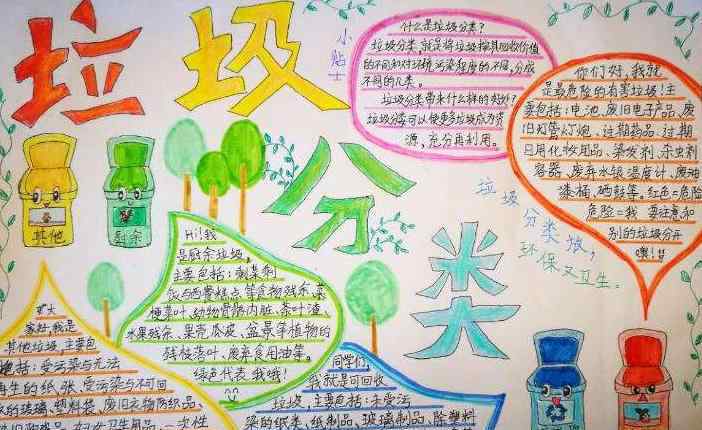 垃圾
分
类
小贴士
什么是垃圾分类?
垃圾分类,就是将垃圾按其回收价值
的不同和对环境污染程度的不同,分成
不同的几类。
垃圾分类带来什么样的好处?
垃圾分类可以使更多垃圾成为资
源,充分再利用。
你们好,我就
是最危险的有害垃圾!主
要包括:电池、废旧电子产品、废
旧灯管灯泡、过期药品、过期
日用化妆用品、染发剂、杀虫剂
容器、废弃水银温度计、废油
漆桶、硒鼓等。红色=危险
危险=我 要注意和
别的垃圾分开
噢!!
垃圾分类放,
环保又卫生。
其他
厨余
Hi!我
是厨余垃圾,
主要包括:剩菜剩
饭与西餐糕点等食物残余、菜
梗菜叶、动物骨骼内脏、茶叶渣、
水果残余、果壳瓜皮、盆景等植物的
残枝落叶、废弃食用油等。
绿色代表我哦!
家好,我是
其他垃圾,主要包
括:受污染与无法
再生的纸张、受污染与不可回
的玻璃、塑料袋、废旧衣物防织品、
妇女卫生用品、一次性
同学们,
我就是可回收
垃圾,主要包括:未受污
染的纸类、纸制品、玻璃制品、除塑料